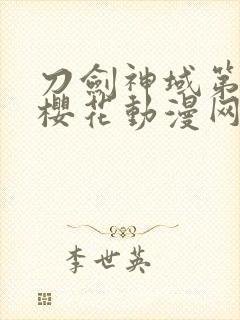 刀劍神域第
櫻花動漫网
李世英